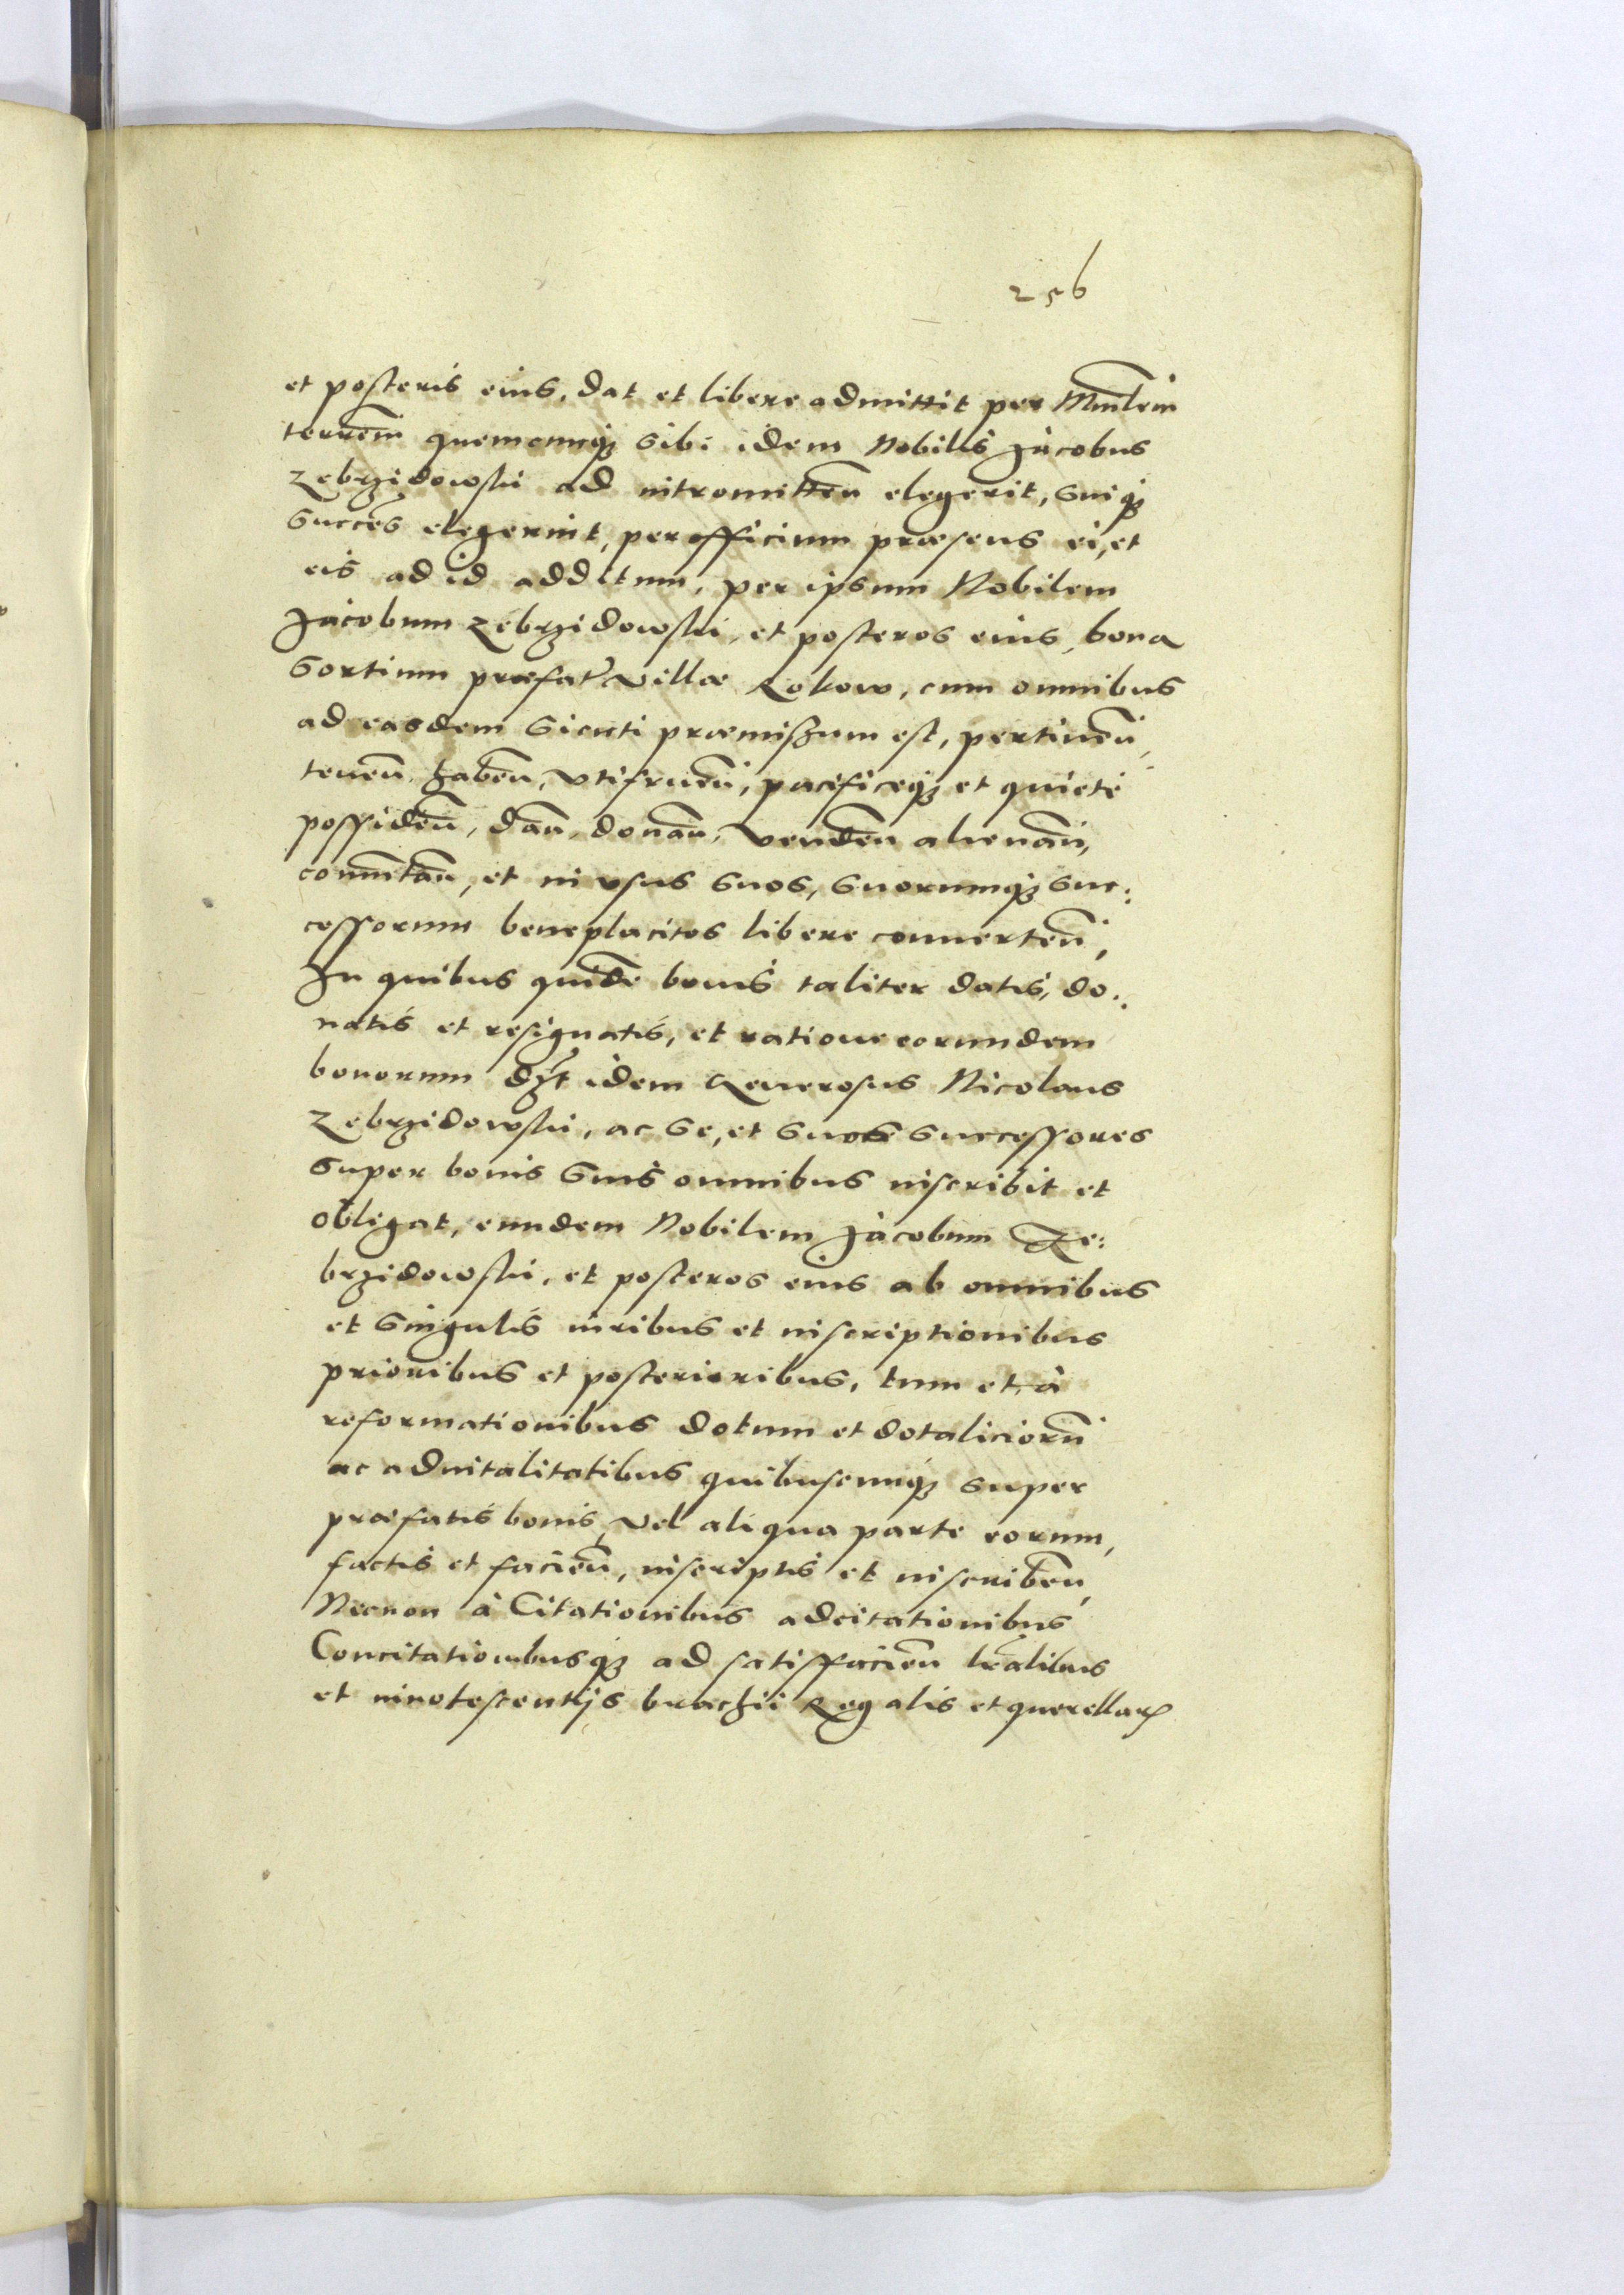 256
et posteris eius, dat et libere admittit per Mnlem
terrem̃ quemcunq; sibi idem Nobilis Jacobus
Zebrzidowski ad intromitten̄ elegerit, suiq;
succes̄ elegerint, per officium præsens ei, et
eis ad id additum, per ipsum Nobilem
Jacobum Zebrzidowski, et posteros eius, bona
sortium præfat villæ Rokow, cum omnibus
ad easdem sicuti præmissum est, pertinen̄,
tenen̄ haben̄, vtifruen̄, pacificeq; et quiete
possiden̄, dan̄, donan̄, venden̄ alienan̄,
commutan̄, et in vsus suos, suorumq; suc:
cessorum beneplacitos libere conuerten̄,
In quibus quide bonis taliter datis, do:
natis et resignatis, et ratione eorumdem
bonorum idem Generosus Nicolaus
Zebrzidowski, ac se, et suos successores
super bonis suis omnibus inscribit et
obligat, eundem Nobilem Jacobum Ze:
brzidowski, et posteros eius ab omnibus
et singulis iuribus et inscriptionibus
prioribus et posterioribus, tum et à
reformationibus dotum et dotaliciorū
ac aduitalitatibus quibuscunq; super
præfatis bonis, vel aliqua parte eorum,
factis et facien̄, inscriptis et inscriben̄,
Necnon à Citationibus adcitationibus
Concitationibusq; ad satisfacien̄ lr̄alibus
et innotescentijs brachii Regalis et querellar